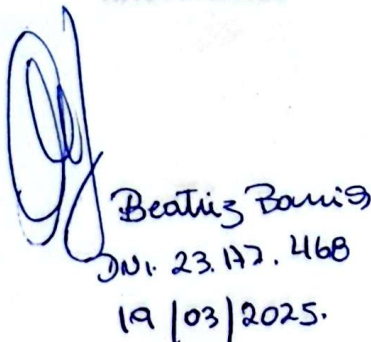 Beatriz Barrios
DNI. 23.177.468
19/03/2025.